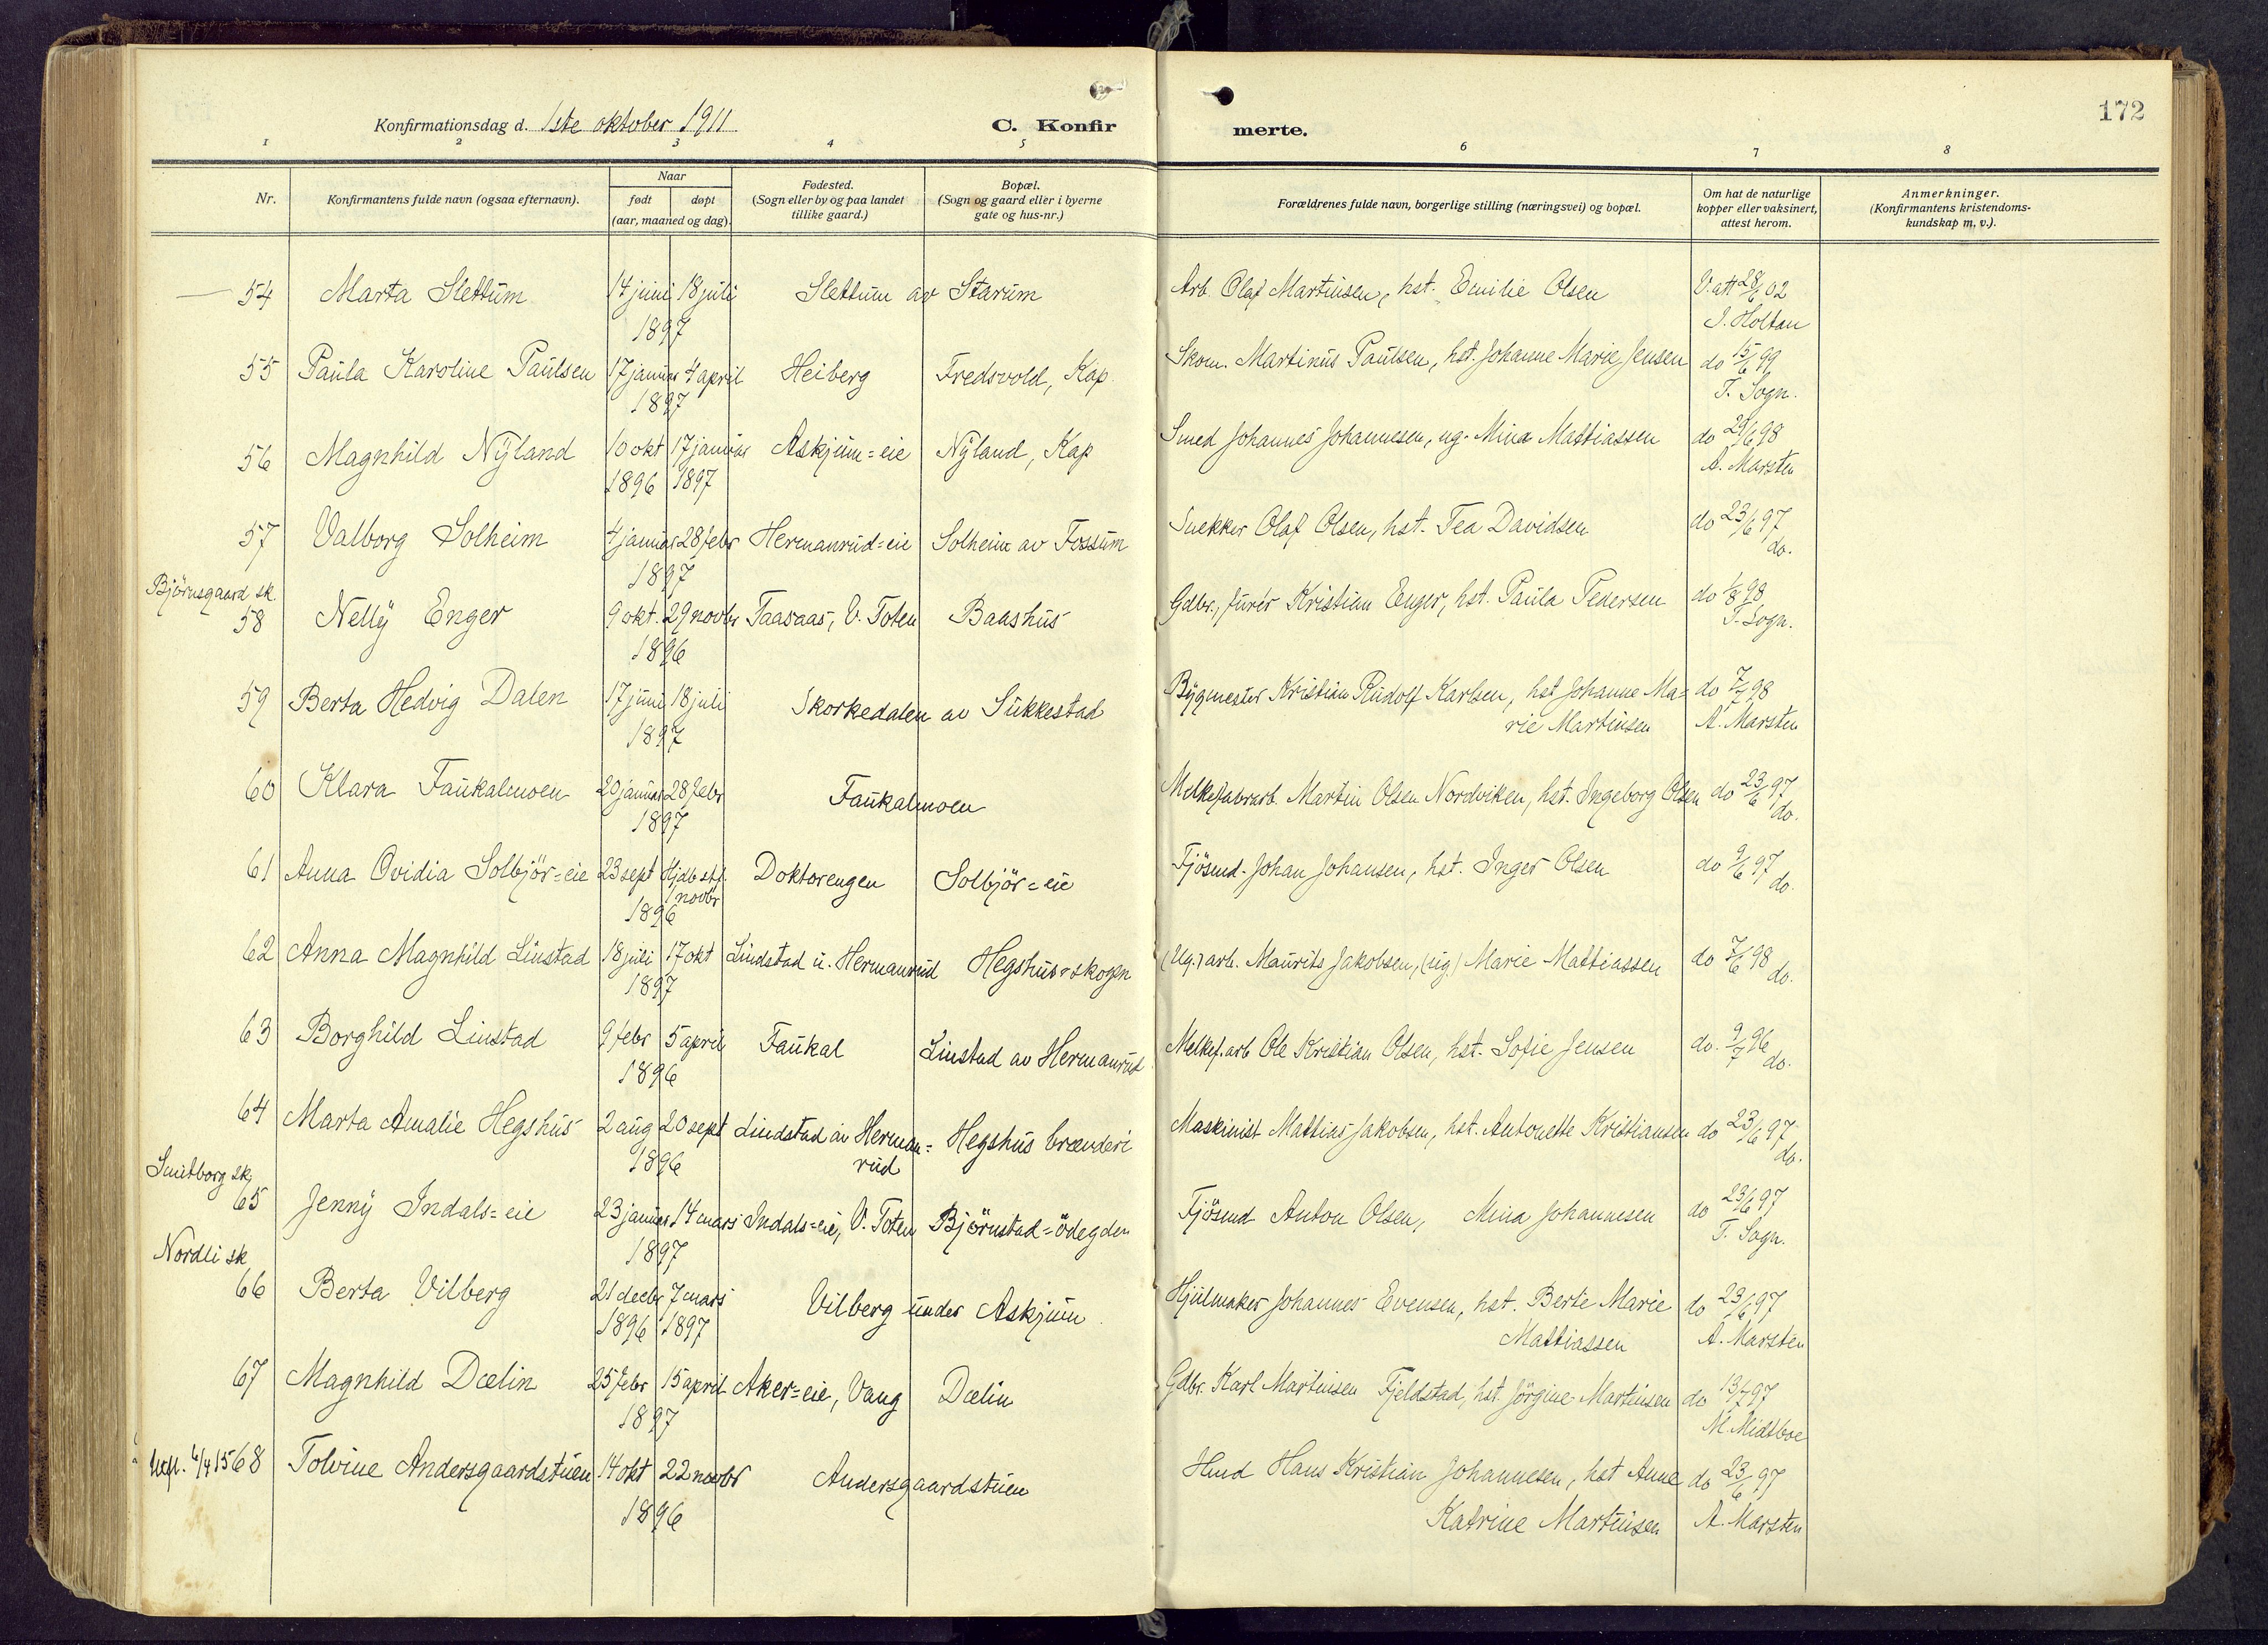 172
Konfirmationsdag d. 1ste oktober 1911
C. Konfir merte.
1 2 3 4 5 6 7 8
Nr.
Konfirmantens fulde navn (ogsaa efternavn).
Naar
født døpt
(aar, maaned og dag).
Fødested.
(Sogn eller by og paa landet
tillike gaard.)
Bopæl.
(Sogn og gaard eller i byerne
gate og hus-nr.)
Forældrenes fulde navn, borgerlige stilling (næringsvei) og bopæl.
Om hat de naturlige
kopper eller vaksinert,
attest herom.
Anmerkninger.
(Konfirmantens kristendoms-
kundskap m. v.).
54 Marta Slettum 14 juni 18 juli Slettum av Starum Arb. Olaf Martinsen, hst. Emilie Olsen V. att 28/6 02
1897 J. Holtan
55 Paula Karoline Paulsen 17 januar 4 april Heiberg Fredsvold, Kap. Skom. Martinus Paulsen, hst. Johanne Marie Jensen do 15/6 99
1897 T. Sogn.
56 Magnhild Nyland 10 okt 17 januar Askjum=eie Nyland, Kap Smed Johannes Johannesen, ug. Mina Mattiassen do 29/6 98
1896 1897 A. Marsten
57 Valborg Solheim 4 januar 28 febr Hermanrud=eie Solheim av Fossum Snekker Olaf Olsen, hst. Tea Davidsen do 23/6 97
1897 do.
Björnsgaard sk.
58 Nelly Enger 9 okt. 29 novbr Taasaas, V. Toten Baashus Gdbr., furér Kristian Enger, hst. Paula Pedersen do 1/8 98
1896 T. Sogn.
59 Berta Hedvig Dalen 17 juni 18 juli Skorkedalen av Sukkestad Bygmester Kristian Rudolf Karlsen, hst Johanne Ma= do 7/7 98
1897 rie Martinsen A. Marsten
60 Klara Faukalmoen 20 januar 28 febr Faukalmoen Melkefabrarb. Martin Olsen Nordviken, hst. Ingeborg Olsen do 23/6 97
1897 do.
61 Anna Ovidia Solbjör=eie 23 sept Hjdb stf. Doktorengen Solbjör=eie Fjösmd. Johan Johansen, hst. Inger Olsen do 9/6 97
1 novbr do.
1896
62 Anna Magnhild Linstad 18 juli 17 okt Lindstad u. Hermanrud Hegshus=skogen (Ug.) arb. Maurits Jakobsen, (ug.) Marie Mattiassen do 7/6 98
1897 do.
63 Borghild Linstad 9 febr 5 april Faukal Linstad av Hermanrud Melkef.arb Ole Kristian Olsen, hst. Sofie Jensen do. 9/7 96
1896 do.
64 Marta Amalie Hegshus 2 aug 20 sept Lindstad av Herman= Hegshus brænderi Maskinist Mattias Jakobsen, hst. Antonette Kristiansen do 23/6 97
1896 rud do.
Smitborg sk
65 Jenny Indals=eie 23 januar 14 mars Indals=eie, V. Toten Björnstad=ödegden Fjösmd Anton Olsen, Mina Johannesen do 23/6 97
1897 T. Sogn.
Nordli sk
66 Berta Vilberg 21 decbr 7 mars Vilberg under Askjum Hjulmaker Johannes Evensen, hst. Berte Marie do 23/6 97
1896 1897 Mattiassen A. Marsten
67 Magnhild Dælin 25 febr 15 april Aker=eie, Vang Dælin Gdbr. Karl Martinsen Fjeldstad, hst. Jörgine Martinsen do 13/7 97
1897 M. Midtboe
Utfl. 6/4 15 68 Tolvine Andersgaardstuen 14 okt 22 novbr Andersgaardstuen Hmd Hans Kristian Johannesen, hst Anne do 23/6 97
1896 Katrine Martinsen A. Marsten